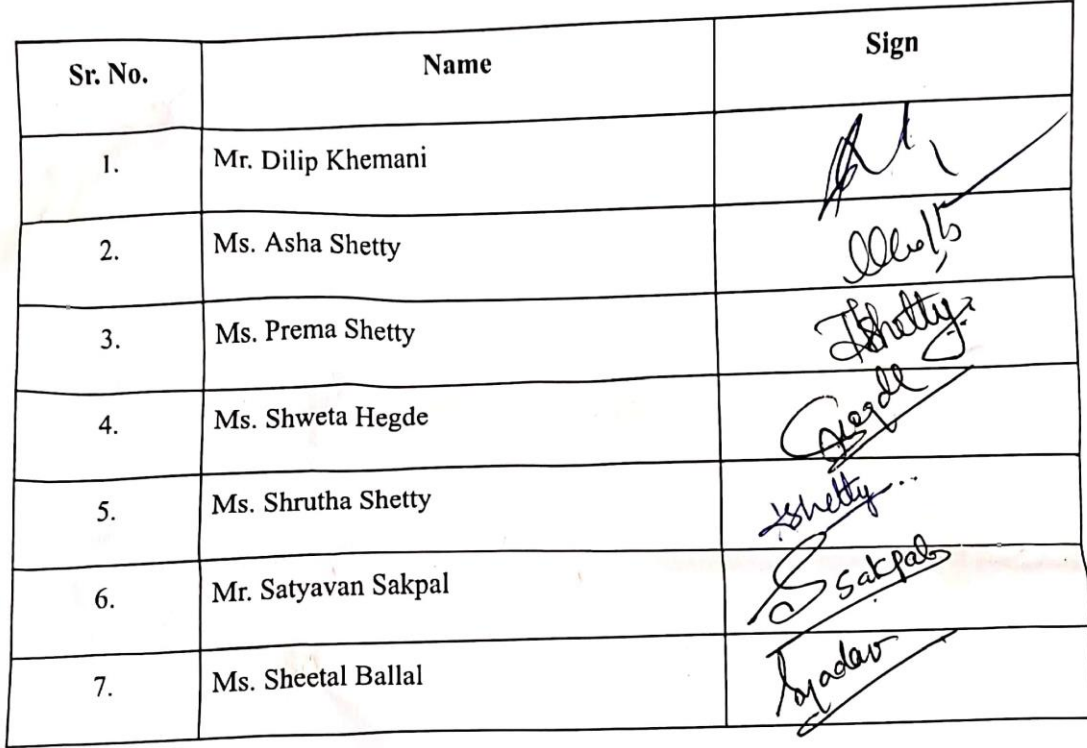 Sr. No. Name Sign
1. Mr. Dilip Khemani
2. Ms. Asha Shetty
3. Ms. Prema Shetty Shetty
4. Ms. Shweta Hegde Hegde
5. Ms. Shrutha Shetty Shetty
6. Mr. Satyavan Sakpal Ssakpal
7. Ms. Sheetal Ballal Syadav